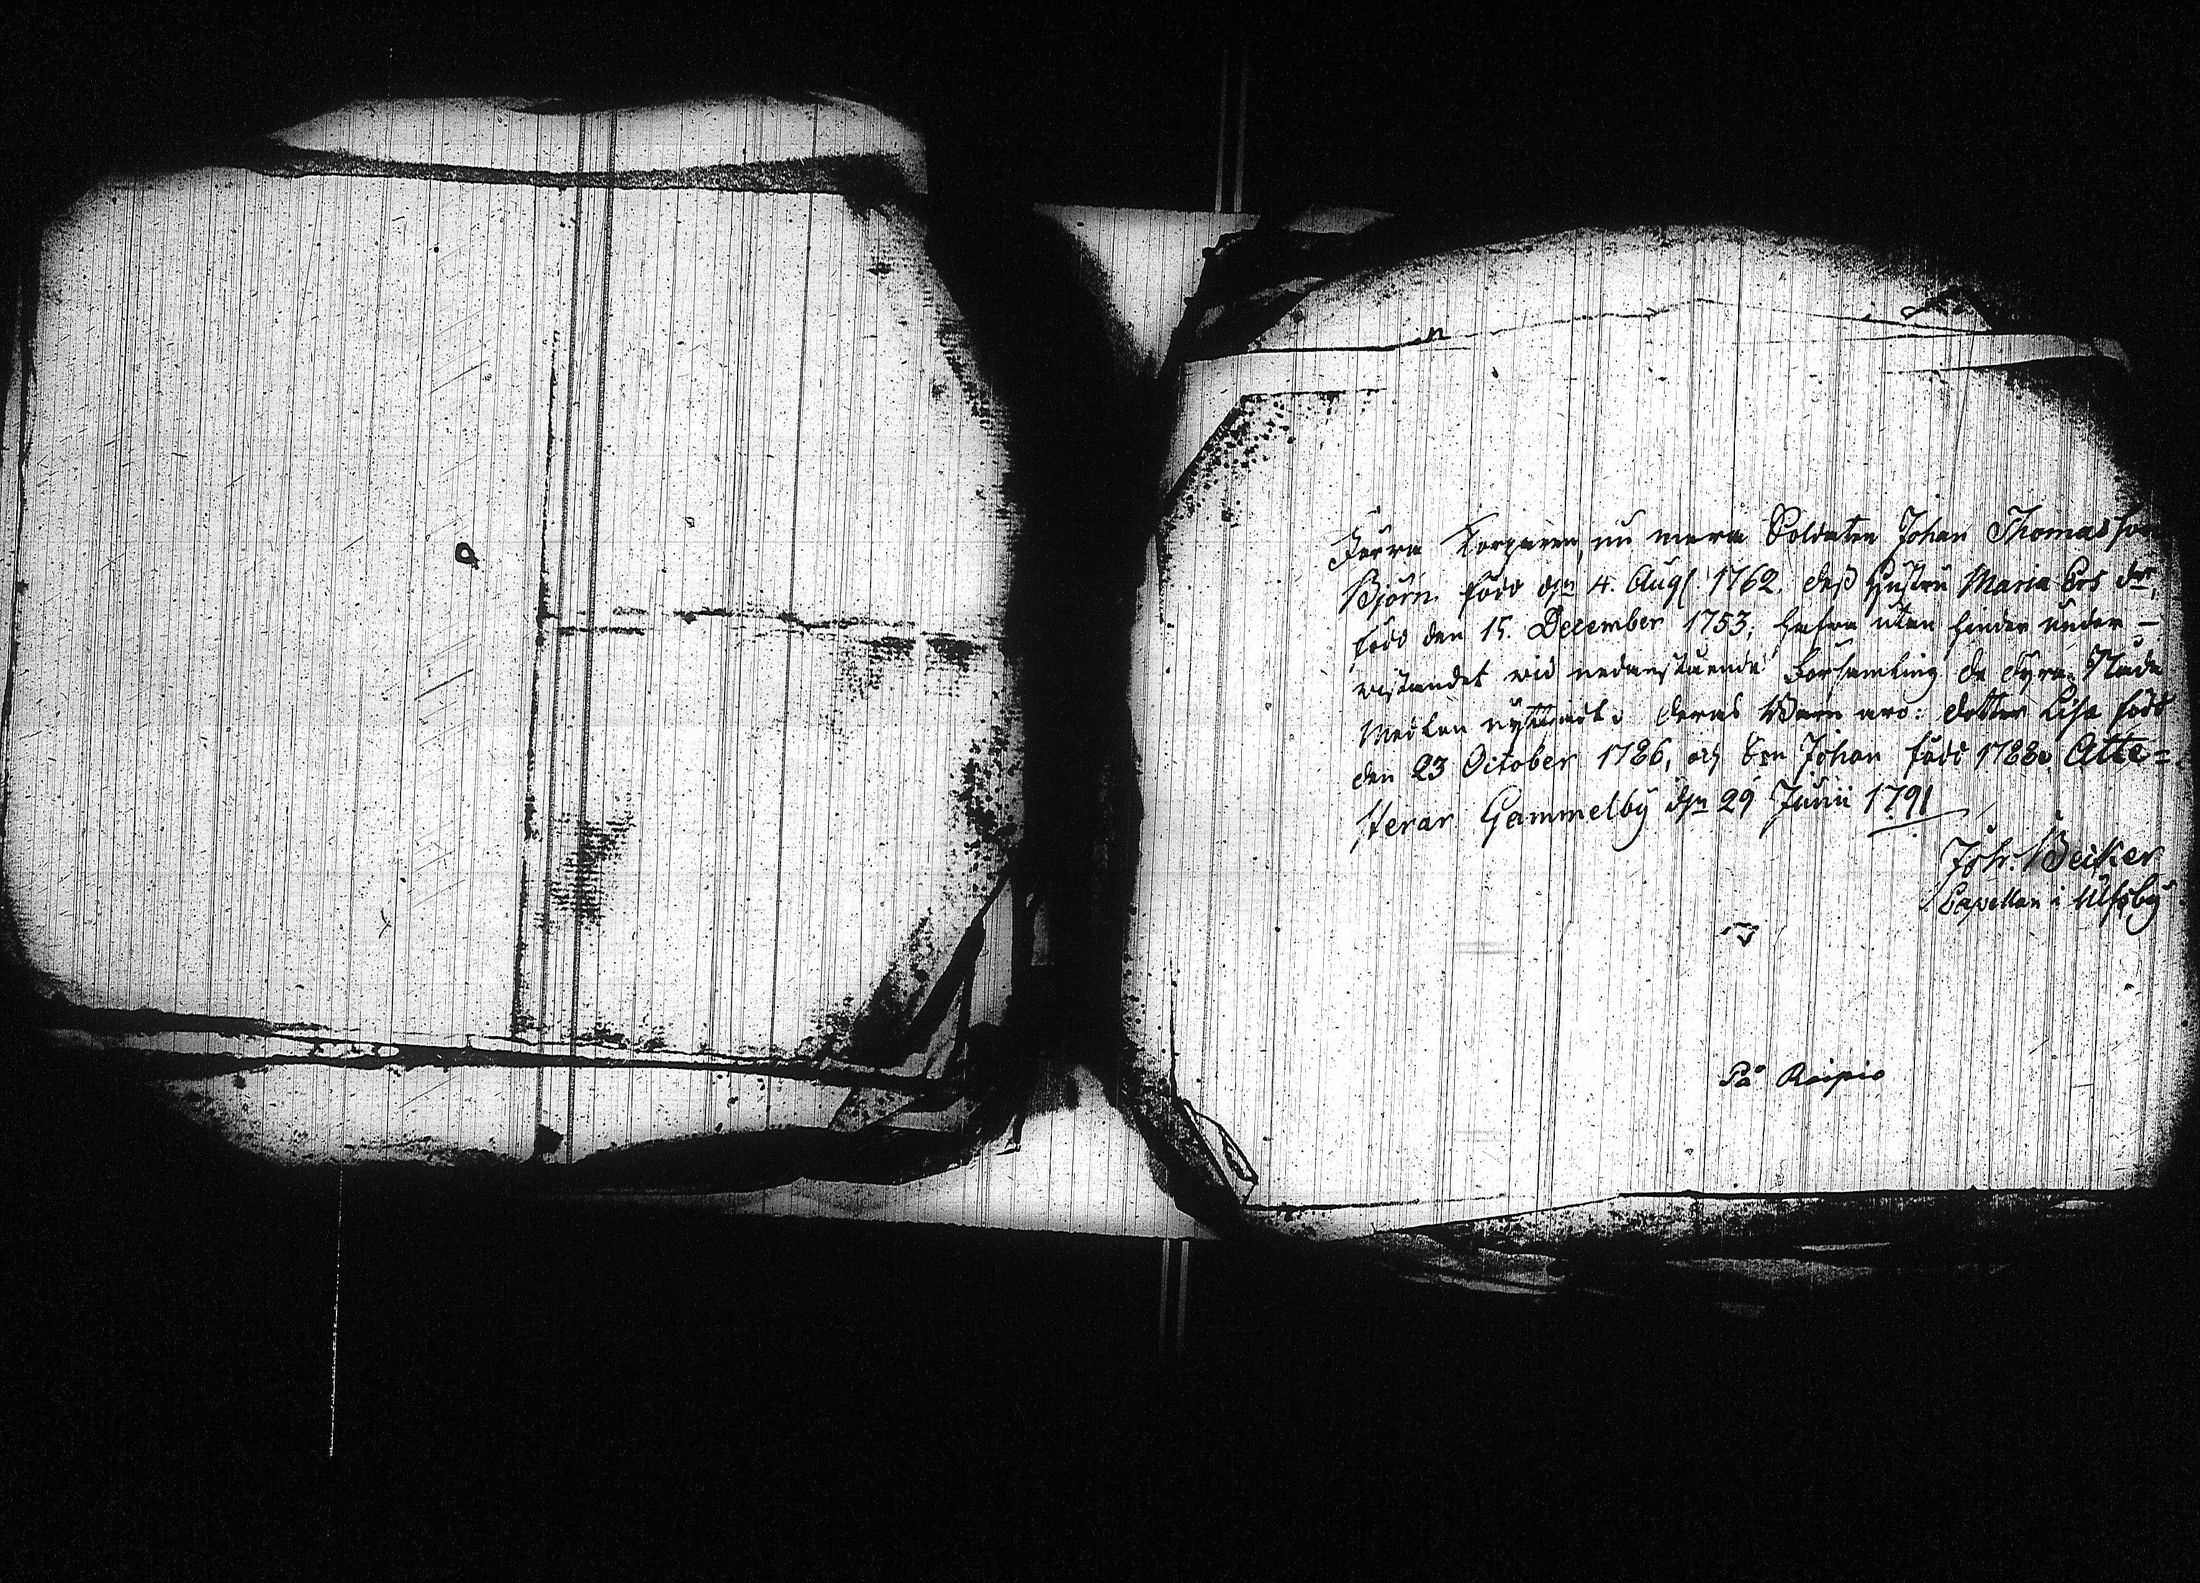 Förra Torparen, nu mera Soldaten Johan Thomasson
Björn född d:n 4. Aug. 1762, dess Hustru Maria Ers dr,
född den 15 December 1753; hafva utan hinder under-
wistandet wid nedanstående Församling de dyra Nåde
Medlen nyttjadt. deras Barn äro: dotter Lisa född
den 23 October 1786, och Son Johan född 1788. Atte=
sterar Gammelby d:n 29 Junii 1791
Joh: Becker
Capellan i Ulfsby
På Reipio